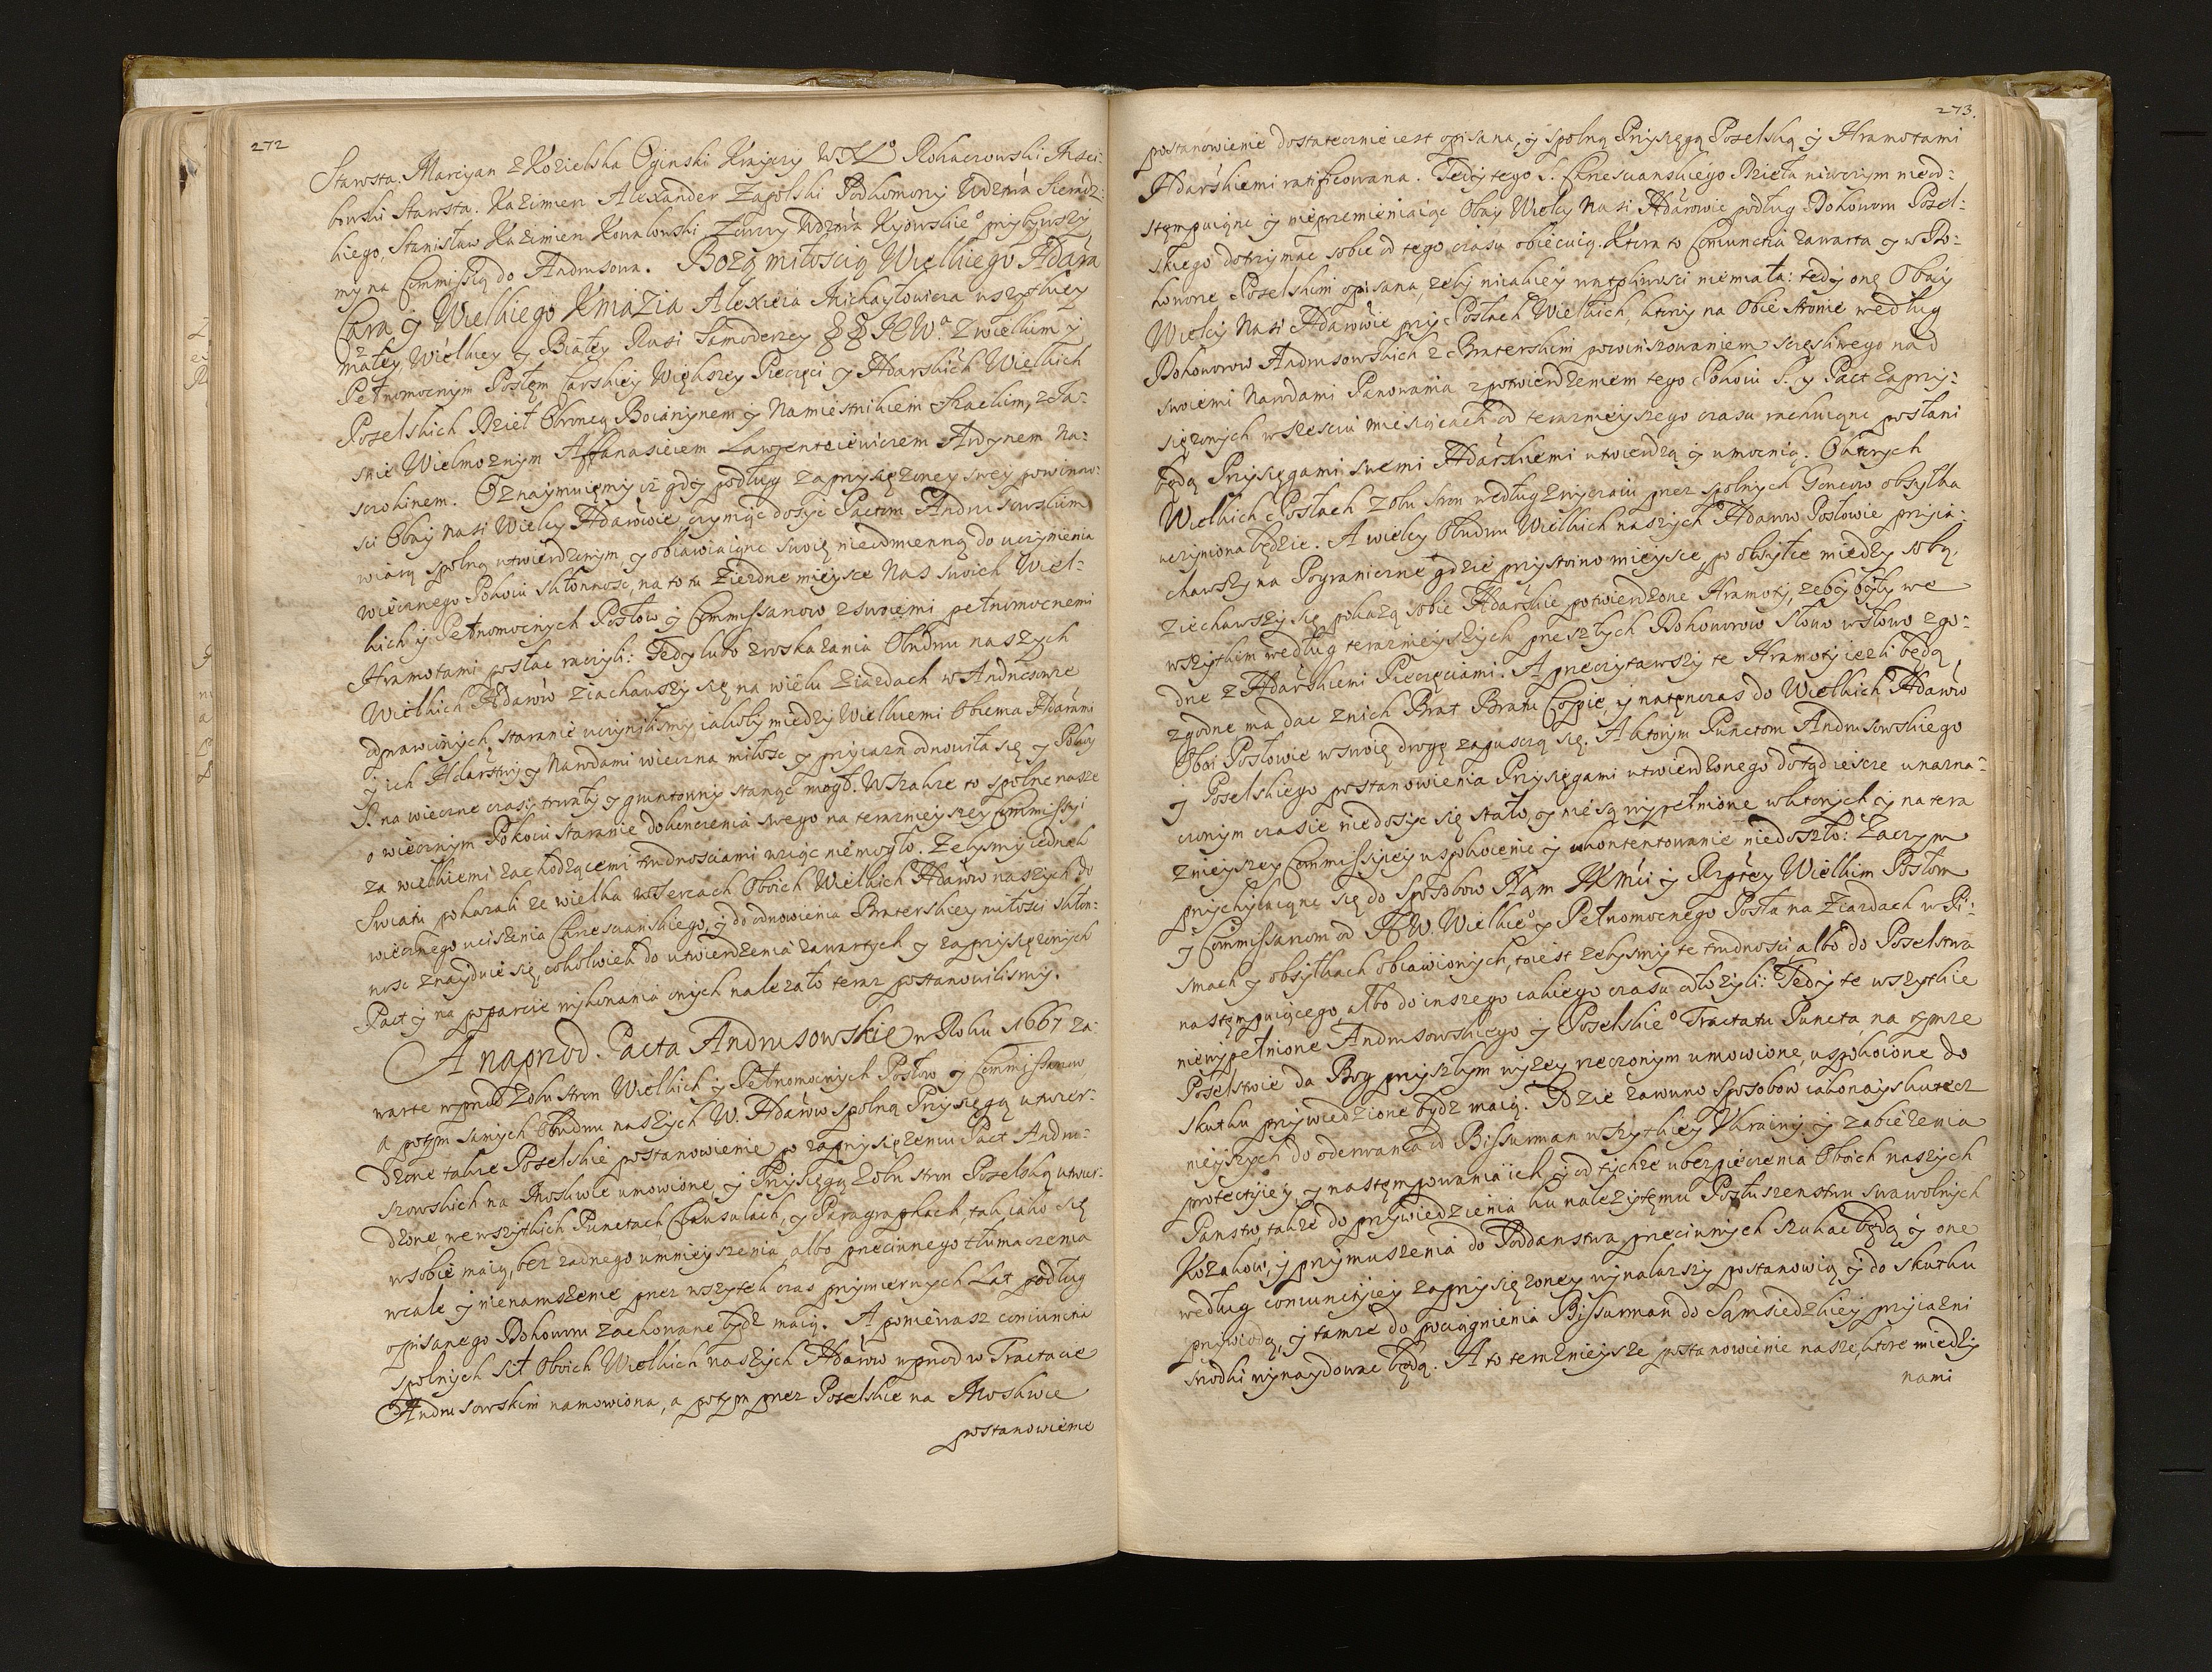 272
Starosta. Marcyan z Kozielska Oginski Krayczy WXLº Rohaczowski Msci-
bowski Starosta. Kazimierz Alexander Zapolski Podkomorzy Wdztwa Sieradz:
kiego, Stanisław Kazimierz Kowalowski Żupny Wdztwa Kyowskieº przybywszy
my na Commissią do Andrusowa. Bożą miłoscią Wielkiego Hdara
Cara y Wielkiego Kniazia Alexieia Michayłowicza wszytkiey
małey Wielkiey y Białey Rusi Samoderzcy §§ JEWª. z wielkim y
Pełnomocnym Posłem Carskiey Większey Pieczęci y Hdarskich Wielkich
Poselskich Dzieł Obroncą Boiarzynem y Namiestnikiem Szackim, z Ja-
snie Wielmożnym Affanasieiem Ławrentieiewiczem Ardynem Na-
szczokinem. Oznaymuięmy iż gdy podług zaprzysięzoney swey powinno-
sci Obay nasi Wielcy Hdarowie, czyniąc dosyć Pactom Andrusowskim
wiarą spolną utwierdzonym y obiawiaiąc swoię nieodmienną do uczynienia
wiecznego Pokoiu skłonnosc, na to tu Ziezdne mieysce Nas swoich Wiel-
kich y Pełnomocnych Posłow y Commissarzow z swoiemi pełnomocnemi
Hramotami posłac raczyli: Tedy lubo z wskazania Obudwu naszych
Wielkich Hdarow ziachawszy się na wielu Ziazdach w Andrusowie
odprawionych, staranie uczynilismy iakoby między Wielkiemi Obiema Hdarami
y ich Hdarstwy y Narodami wieczna miłosc y przyiazn odnowiła się y Pokoy
S. na wieczne czasy trwały y gruntowny stanąc mogł. Wszakze to spolne nasze
o wiecznym Pokoiu staranie dokonczenia swego na teraznieyszey Commissyi
za wielkiemi zachodzącemi trudnosciami wziąc niemogło. Zebysmy iednak
Swiatu pokazali ze wielka w Sercach Oboich Wielkich Hdarow naszych do
wiecznego uciszenia Chrzescianskiego, y do odnowienia Braterskiey miłosci skłon-
nosc znayduie się, cokolwiek do utwierdzenia zawartych y zaprzysięzonych
Pact y na poparcie wykonania onych nalezało teraz postanowilismy.
A naprzod. Pacta Andrusowskie w Roku 1667 za-
warte wprzod z obu stron Wielkich y Pełnomocnych Posłow y Commissarzow
a potym samych Obudwu naszych W. Hdarow spolną Przysięgą utwier-
dzone takze Poselskie postanowienie po zaprzysięzeniu Pact Andru-
szowskich na Moskwie umowione, y Przysięgą z obu stron Poselską utwier-
dzone we wszytkich Punctach, Clausulach, y Paragraphach, tak iako się
w sobie maią, bez zadnego umnieyszenia albo przeciwnego tłumaczenia
wcale y nienaruszenie przez wszytek czas przymiernych Lat podług
opisanego Dohoworu zachowane bydz maią. A ponieważ coniunctia
spolnych sił Oboich Wielkich naszych Hdarow wprzod w Tractacie
Andrusowskim namowiona, a potym przez Poselskie na Moskwie
postanowienie
273.
postanowienie dostatecznie iest opisana, y spolną Przysięgą Poselską y Hramotami
Hdarskiemi ratificowana. Tedy tego S. Chrzescianskiego Dzieła niwczym nieod-
stępuiąc y nieprzemieniaiąc Obay Wielcy Nasi Hdarowie podług Dohoworu Posel-
skiego dotrzymac sobie od tego czasu obiecuią. Ktora to Coniunctia zawarta y w Do-
howorze Poselskim opisana, zeby niiakiey wątpliwosci niemiała: tedy onę Obay
Wielcy Nasi Hdarowie przy Posłach Wielkich, ktorzy na obie stronie według
Dohoworow Andrusowskich z Braterskim powinszowaniem szczęsliwego nad
swoiemi Narodami Panowania z potwierdzeniem tego Pokoiu S. y Pact zaprzy-
sięzonych w szesciu miesiącach od teraznieyszego czasu rachuiąc posłani
będą Przysięgami swemi Hdarskiemi utwierdzą y umocnią. O ktorych
Wielkich Posłach z obu stron według zwyczaiu przez spolnych Goncow obsyłka
uczyniona będzie. A wielcy Obudwu Wielkich naszych Hdarow Posłowie przyia-
chawszy na Pograniczne gdzie przystoino mieysce, po obsyłce między sobą,
ziechawszy się pokażą sobie Hdarskie potwierdzone Hramoty, zeby były we
wszytkim według teraznieyszych przeszłych Dohoworow słowo w słowo zgo-
dne z Hdarskiemi Pieczęciami. A przeczytawszy te Hramoty iezli będą
zgodne ma dac z nich Brat Bratu Copie, y natęnczas do Wielkich Hdarow
Oboi Posłowie w swoię drogę zapuszczą się. A ktorym Punctom Andrusowskiego
y Poselskiego postanowienia Przysięgami utwierdzonego dotąd ieszcze w nazna-
czonym czasie niedosyc się stało, y nie są wypełnione w ktorych y na tera
znieyszey Commissiey uspokoienie y ukontentowanie niedoszło: Zaczym
przychylaiąc się do sposobow Nam JKMci y Rzptey Wielkim Posłom
y Commissarzom od JEW. Wielkieº y Pełnomocnego Posła na Ziazdach w Pi-
smach y obsyłkach obiawionych, toiest zebysmy te trudnosci albo do Poselstwa
następuiącego albo do inszego iakiego czasu odłożyli: Tedy te wszytkie
niewypełnione Andrusowskiego y Poselskieº Tractatu Puncta na tymze
Poselstwie da Bog przyszłym wyzey rzeczonym umowione, uspokoione do
skutku przywiedzione bydz maią. Gdzie zarowno sposobow iakonayskutecz
nieyszych do oderwania od Bissurman wszytkiey Ukrainy y zabiezenia
protectyiey, y następowania ich y od tychze ubezpieczenia Oboich naszych
Panstw, takze do przywiedzienia ku nalezytęmu Posłuszenstwu swawolnych
Kozakow, y przymuszenia do Poddanstwa przeciwnych szukac będą y one
według coniunctyiey zaprzysięzoney wynalazszy postanowią y do skutku
przywiodą, y tamze do pociągnienia Bissurman do Sąmsiedzkiey przyiazni
srodki wynaydowac będą. A to teraznieysze postanowienie nasze, ktore między
nami